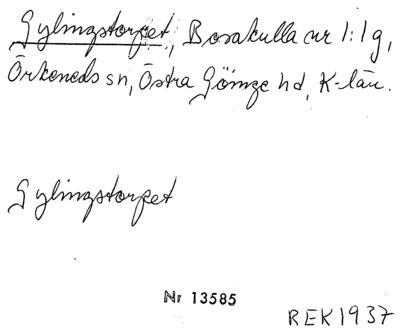 Gylingstorpet, Bosakulla nr 1:1g,
Örkeneds sn, Östra Göinge hd, K-län.
Gylingstorpet
Nr 13585
REK 1937